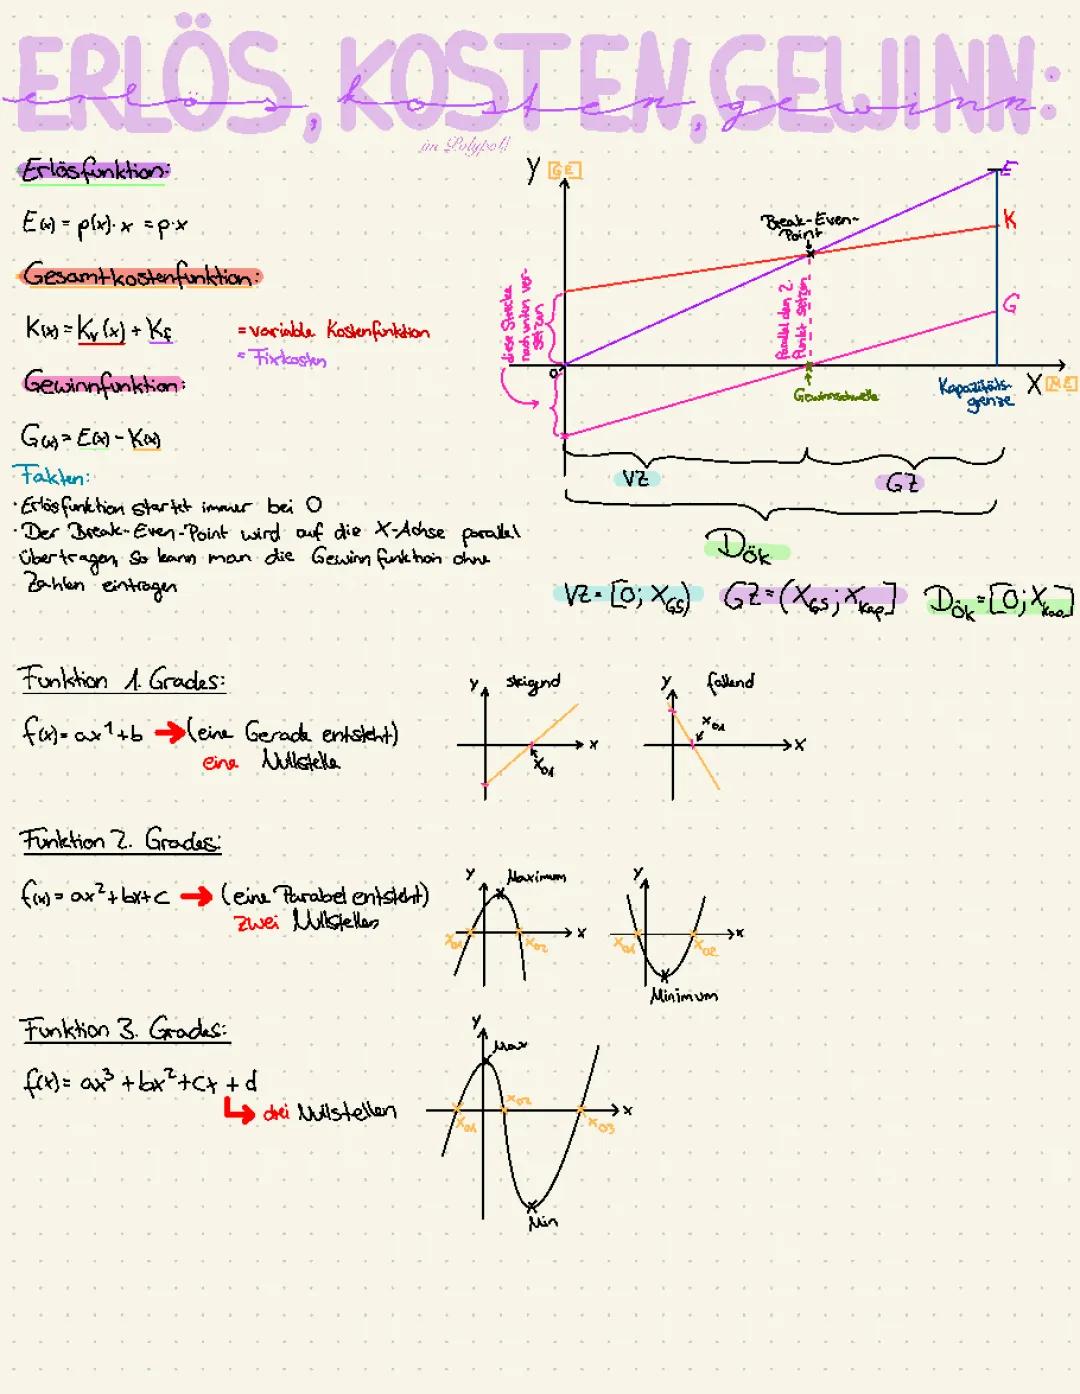 ERLÖS, KOSTEN, GEWINN:
erlös, kosten, gewinn
im Polypol!
Erlösfunktion:
E(x) = p(x) · x = p · x
Gesamtkostenfunktion:
K(x) = Kv(x) + Kf
= variable Kostenfunktion
= Fixkosten
Gewinnfunktion:
G(x) = E(x) - K(x)
Fakten:
· Erlösfunktion startet immer bei 0
· Der Break-Even-Point wird auf die X-Achse parallel
übertragen, so kann man die Gewinnfunktion ohne
Zahlen eintragen
Y [GE]
E
Break-Even-
Point
K
G
diese Strecke
nach unten ver-
setzen
Parallel den 2.
Punkt setzen
0
Gewinnschwelle
Kapazitäts-
grenze
X [ME]
VZ
GZ
Dök
VZ = [0; XGS)
GZ = (XGS; XKap]
Dök = [0; XKap]
Funktion 1. Grades:
f(x) = ax¹ + b → (eine Gerade entsteht)
eine Nullstelle
y steigend
x
x01
y fallend
x01
x
Funktion 2. Grades:
f(x) = ax² + bx + c → (eine Parabel entsteht)
zwei Nullstellen
y Maximum
x01 x02 x
y
x01 x02 x
Minimum
Funktion 3. Grades:
f(x) = ax³ + bx² + cx + d
drei Nullstellen
y
Max
x01 x02 x03 x
Min